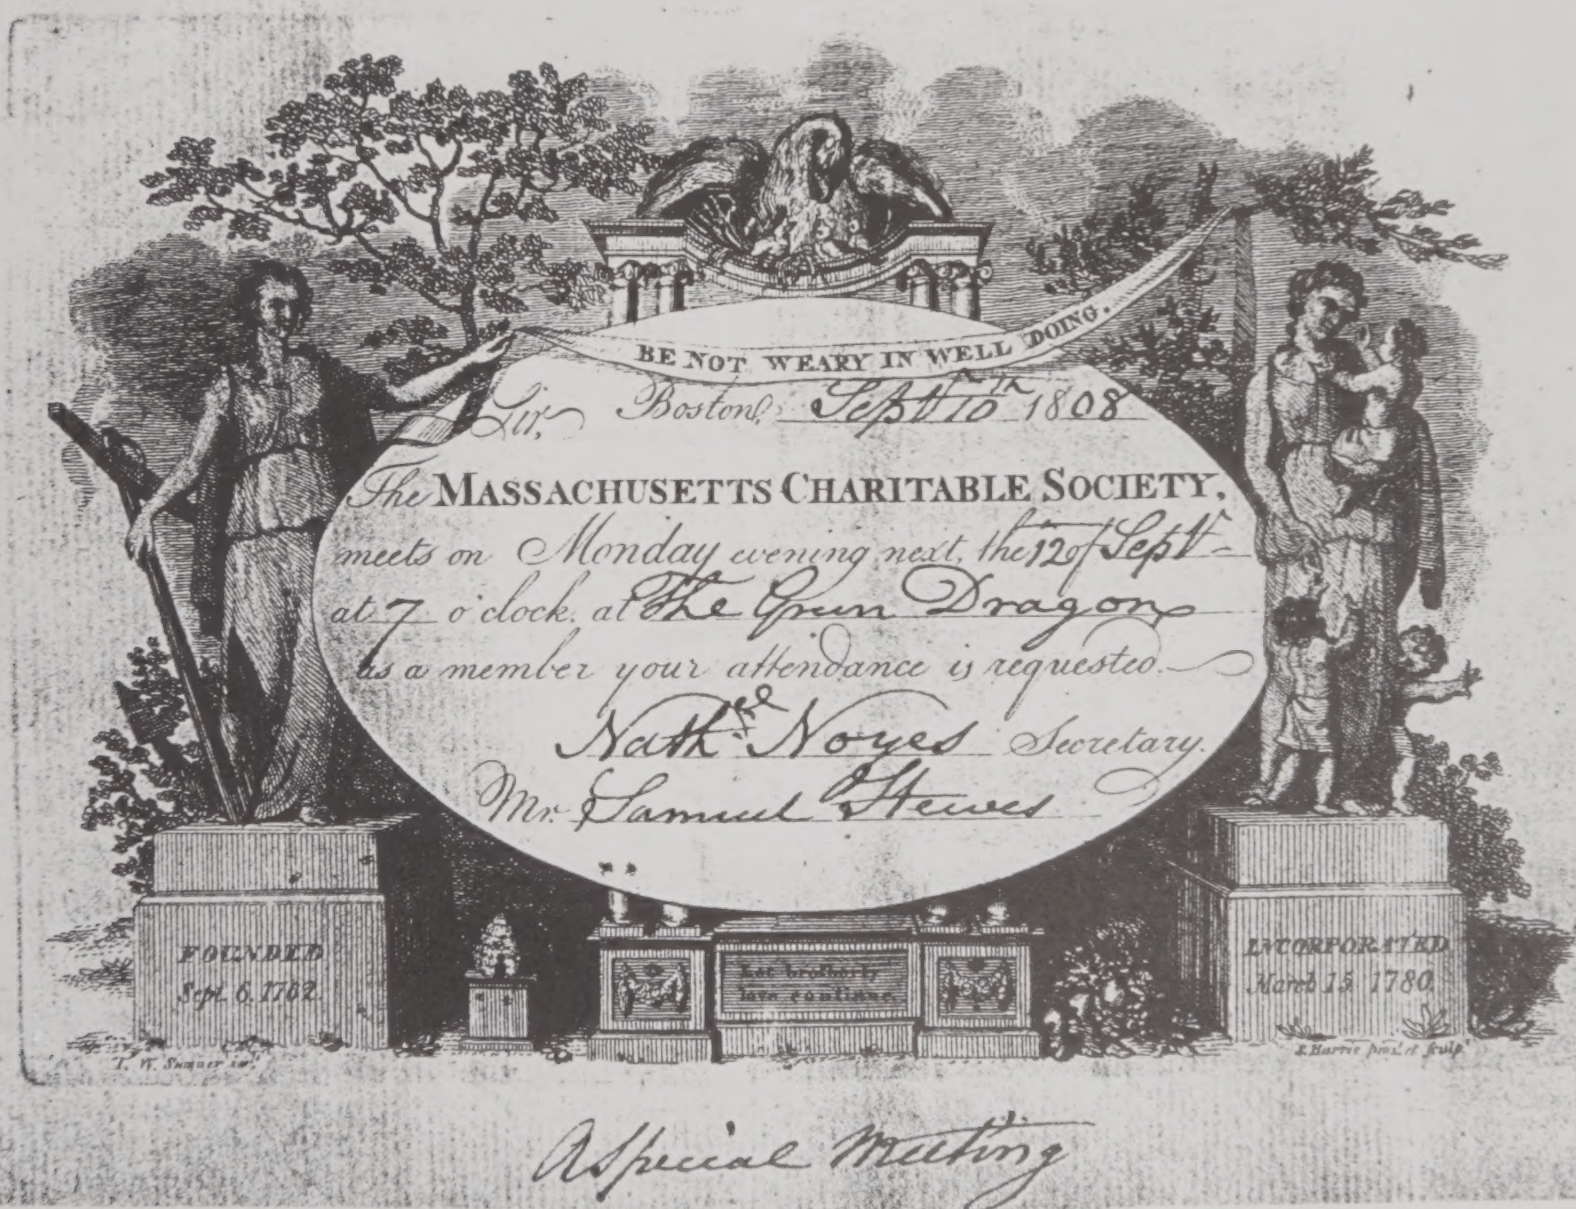 BE NOT WEARY IN WELL DOING.
Sir, Boston, Septr 10th 1808
The MASSACHUSETTS CHARITABLE SOCIETY,
meets on Monday evening next, the 12 of Septr
at 7 o'clock, at The Green Dragon
as a member your attendance is requested.
Nathel Noyes Secretary.
Mr. Samuel Hewes
FOUNDED
Sept. 6. 1762.
Let brotherly
love continue.
INCORPORATED
March 15 1780.
T. W. Sumner inv.
S. Harris pinx. et sculp.
A Special Meeting